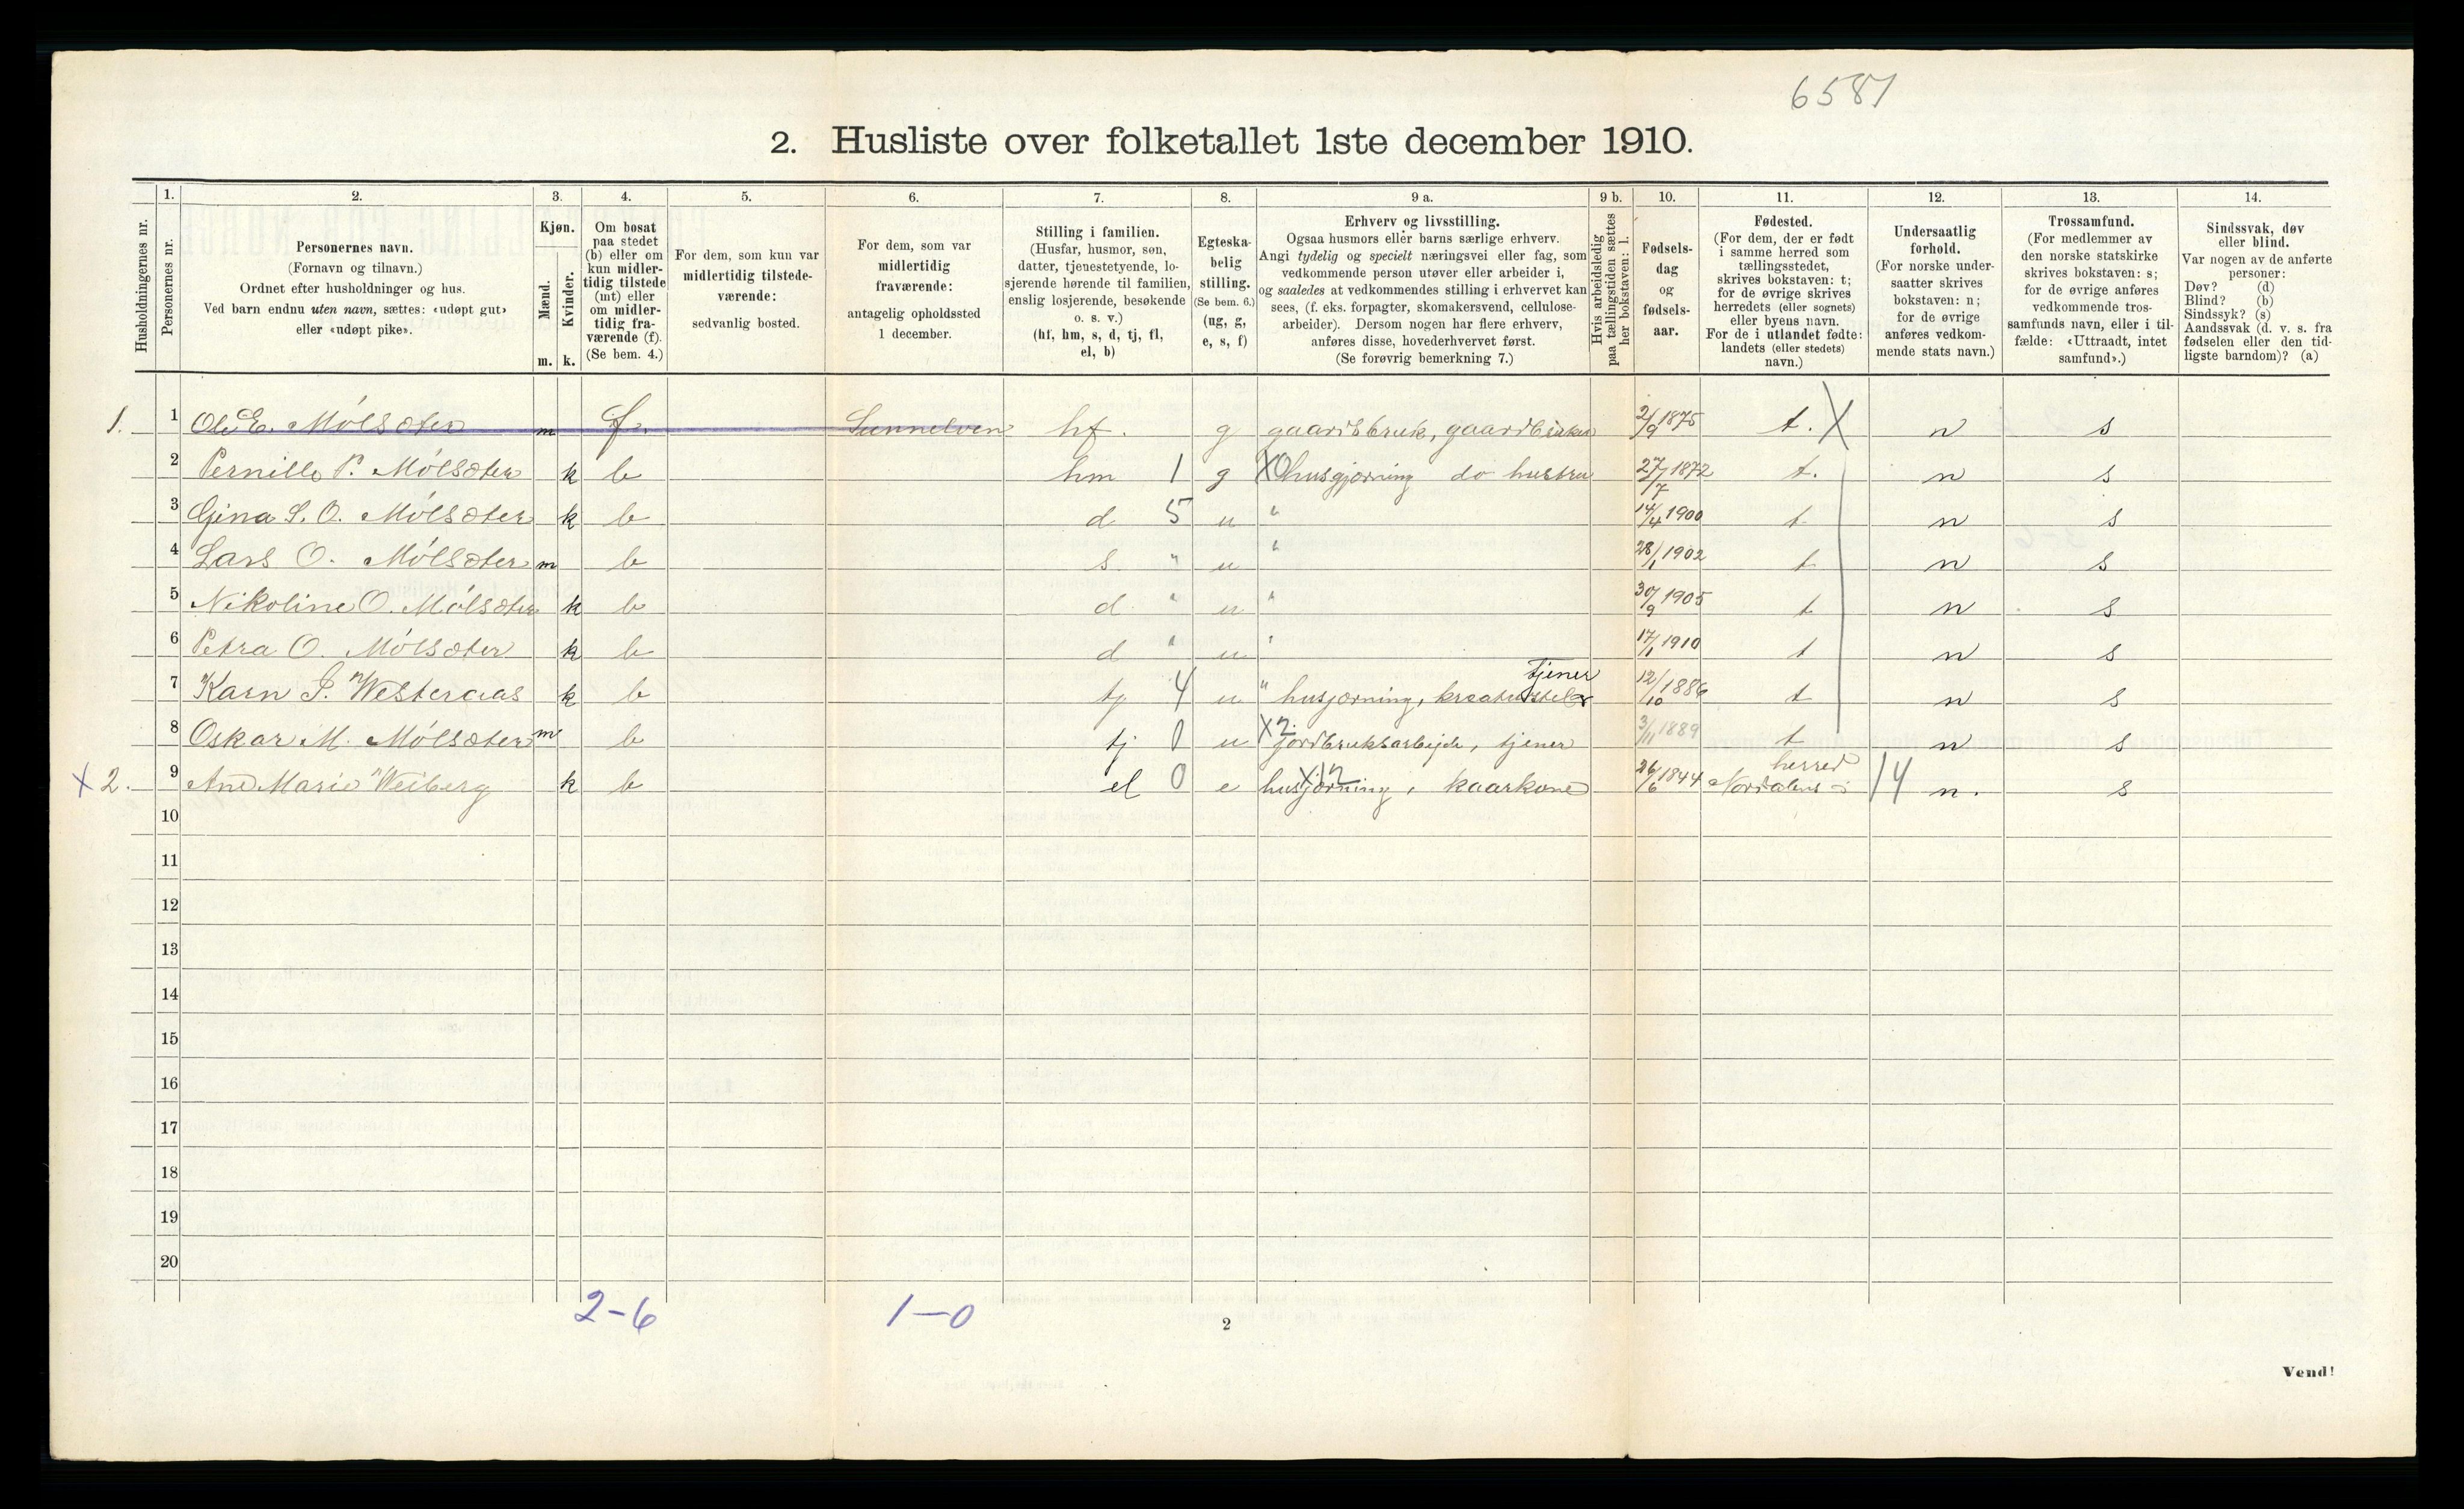 6587
2. Husliste over folketallet 1ste december 1910.
Husholdningernes nr.
1.
Personernes nr.
2.
Personernes navn.
(Fornavn og tilnavn.)
Ordnet efter husholdninger og hus.
Ved barn endnu uten navn, sættes: «udøpt gut»
eller «udøpt pike».
3.
Kjøn.
Mænd.
m.
Kvinder.
k.
4.
Om bosat
paa stedet
(b) eller om
kun midler-
tidig tilstede
(mt) eller
om midler-
tidig fra-
værende (f).
(Se bem. 4.)
5.
For dem, som kun var
midlertidig tilstede-
værende:
sedvanlig bosted.
6.
For dem, som var
midlertidig
fraværende:
antagelig opholdssted
1 december.
7.
Stilling i familien.
(Husfar, husmor, søn,
datter, tjenestetyende, lo-
sjerende hørende til familien,
enslig losjerende, besøkende
o. s. v.)
(hf, hm, s, d, tj, fl,
el, b)
8.
Egteska-
belig
stilling.
(Se bem. 6.)
(ug, g,
e, s, f)
9 a.
Erhverv og livsstilling.
Ogsaa husmors eller barns særlige erhverv.
Angi tydelig og specielt næringsvei eller fag, som
vedkommende person utøver eller arbeider i,
og saaledes at vedkommendes stilling i erhvervet kan
sees, (f. eks. forpagter, skomakersvend, cellulose-
arbeider). Dersom nogen har flere erhverv,
anføres disse, hovederhvervet først.
(Se forøvrig bemerkning 7.)
9 b.
Hvis arbeidsledig
paa tællingstiden sættes
her bokstaven: l.
10.
Fødsels-
dag
og
fødsels-
aar.
11.
Fødested.
(For dem, der er født
i samme herred som
tællingsstedet,
skrives bokstaven: t;
for de øvrige skrives
herredets (eller sognets)
eller byens navn.
For de i utlandet fødte:
landets (eller stedets)
navn.)
12.
Undersaatlig
forhold.
(For norske under-
saatter skrives
bokstaven: n;
for de øvrige
anføres vedkom-
mende stats navn.)
13.
Trossamfund.
(For medlemmer av
den norske statskirke
skrives bokstaven: s;
for de øvrige anføres
vedkommende tros-
samfunds navn, eller i til-
fælde: «Uttraadt, intet
samfund».)
14.
Sindssvak, døv
eller blind.
Var nogen av de anførte
personer:
Døv? (d)
Blind? (b)
Sindssyk? (s)
Aandssvak (d. v. s. fra
fødselen eller den tid-
ligste barndom)? (a)
1. 1 Ole E. Mólsæter m f. Sunnelven hf. g gaardsbruk, gaardbruker 2/9 1875 t. X n s
2 Pernille P. Mólsæter k b hm 1 g X0 husgjørning do hustru 27/7 1872 t. n s
3 Gina S. O. Mólsæter k b d 5 u " 14/4 1900 t n s
4 Lars O. Mólsæter m b s. " u " 28/1 1902 t n s
5 Nikoline O. Mólsæter k b d " u " 30/9 1905 t n s
6 Petra O. Mólsæter k b d " u " 17/1 1910 t n s
tjener
7 Karn J. Westeraas k b tj 4 u " husjørning, kreaturstel 12/10 1886 t n s
8 Oskar M. Mólsæter m b tj 0 u X2. jordbruksarbejde, tjener 3/11 1889 t n s
herred
X 2. 9 Ane Marie Weiberg k b el 0 e husjørning, X12 kaarkone 26/6 1844 Nordalens 14 n. s
10
11
12
13
14
15
16
17
18
19
20
2-6 1-0
2
Vend!